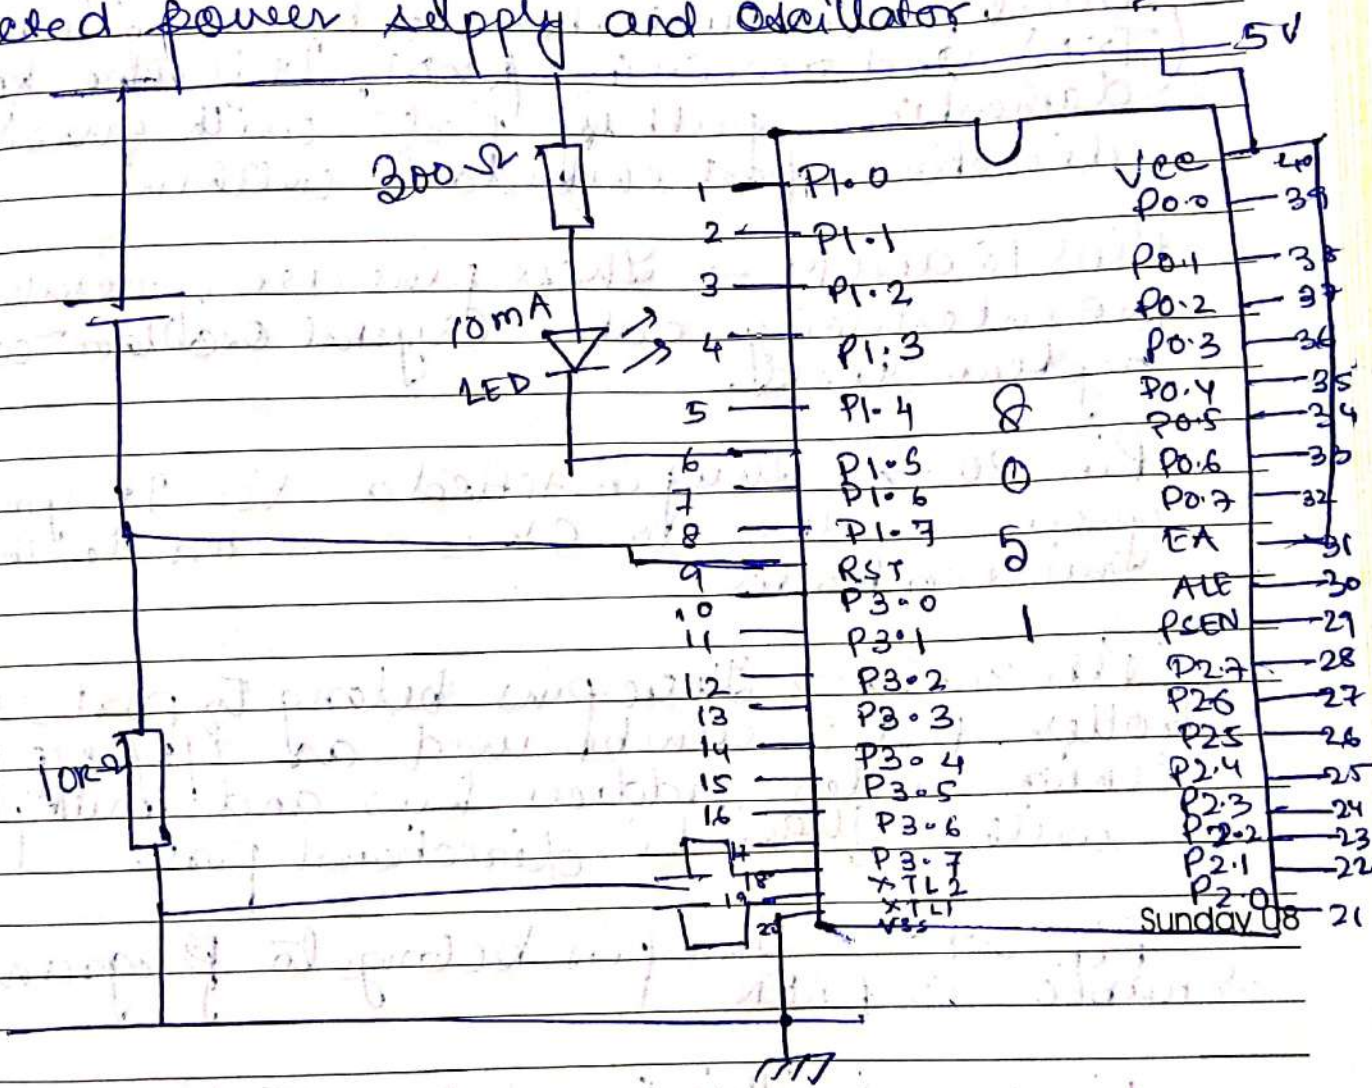 cted power supply and Oscillator.
5V
300Ω
10mA
LED
10KΩ
1 P1.0
2 P1.1
3 P1.2
4 P1.3
5 P1.4
6 P1.5
7 P1.6
8 P1.7
9 RST
10 P3.0
11 P3.1
12 P3.2
13 P3.3
14 P3.4
15 P3.5
16 P3.6
17 P3.7
18 XTL2
19 XTL1
20 VSS
8
0
5
1
Vcc 40
P0.0 39
P0.1 38
P0.2 37
P0.3 36
P0.4 35
P0.5 34
P0.6 33
P0.7 32
EA 31
ALE 30
PSEN 29
P2.7 28
P26 27
P25 26
P2.4 25
P2.3 24
P2.2 23
P2.1 22
P2.0 21
Sunday 08